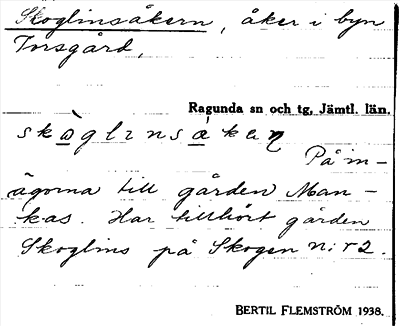 Skoglinsåkern, åker i byn
Torsgård,
Ragunda sn och tg, Jämtl. län.
skòglinsákeɳ
På in-
ägorna till gården Man-
kas. Har tillhört gården
Skoglins på Skogen n:r 2.
BERTIL FLEMSTRÖM 1938.